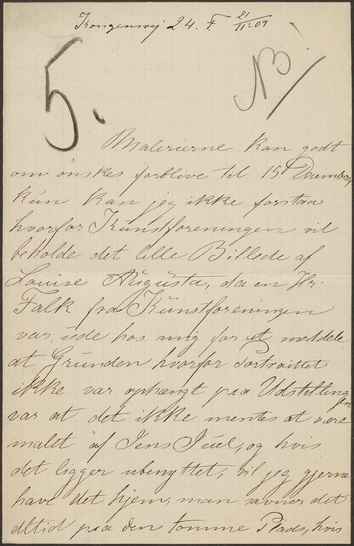 Kongensvej 24. F 21/11.09
5.
NB!
Malerierne kan godt
om ønskes forblive til 15 December,
kun kan jeg ikke forstaa
hvorfor Kunstforeningen vil
beholde det lille Billede af
Louise Augusta, da en Hr.
Falk fra Kunstforeningen
var ude hos mig for at meddele
at Grunden hvorfor Portraittet
ikke var ophængt paa Udstillingen
var at det ikke mentes at være
malet af Jens Juel, og hvis
det ligger ubenyttet, vil jeg gjerne
have det hjem, man savner det
altid paa den tomme Plads, hvis